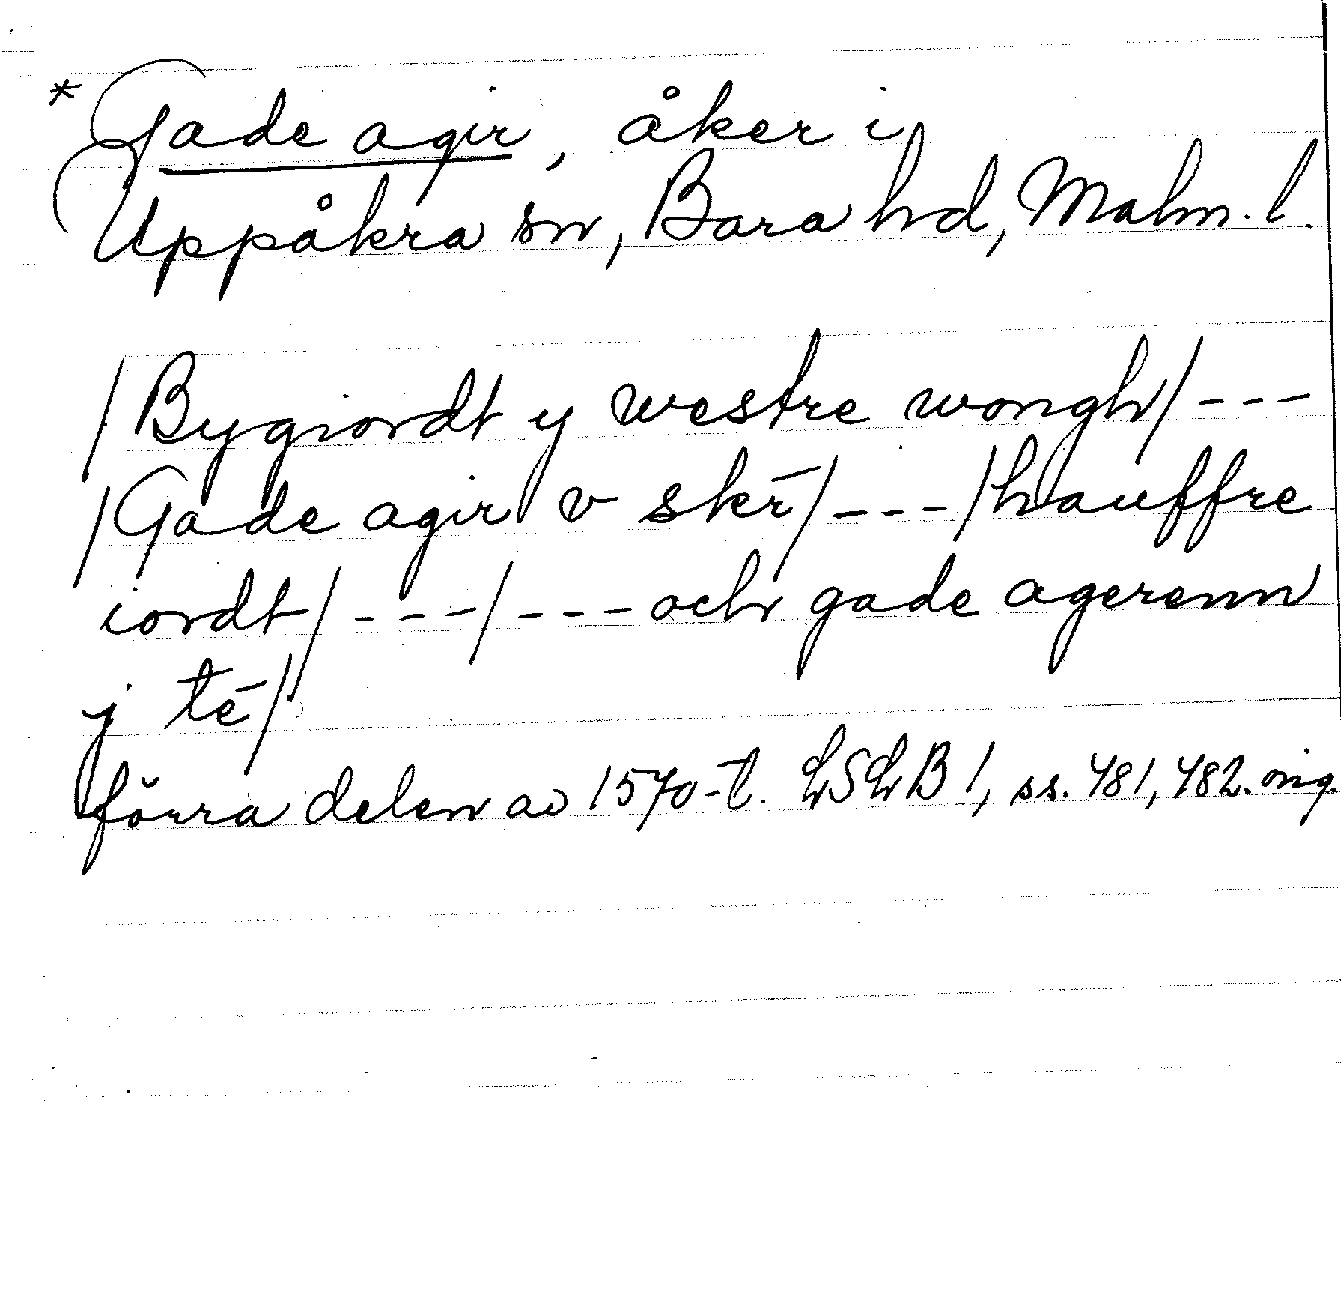 * Gade agir, åker i
Uppåkra sn, Bara hd, Malm. l.
/Bygiordt y westre wongh/---
/Gade agir v skr̄/---/hauffre
iordt/---/---och gade agerenn
y tē/
förra delen av 1570-t. LSLB 1, ss. 481, 482. orig.